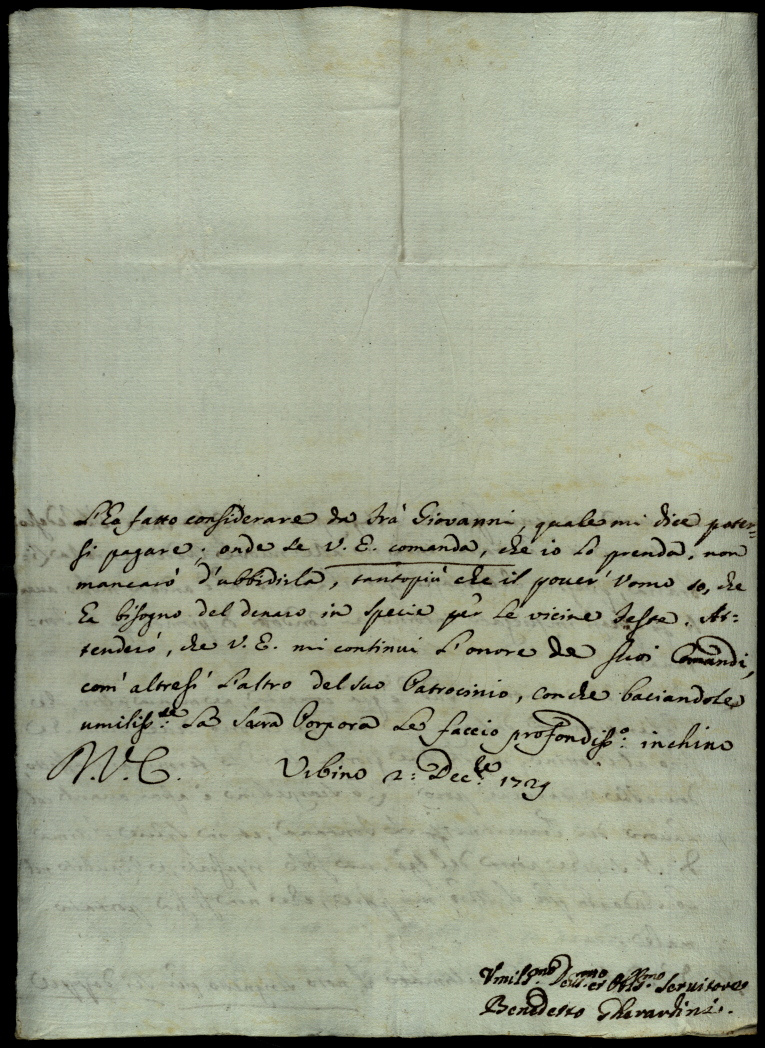 L'hà fatto considerare da Frà Giovanni, quale mi dice poter-
si pagare; onde se V. E. comanda, che io lo prenda, non
mancarò d'ubbidirla, tantopiù che il pover' Vomo so, che
hà bisogno del denaro in specie per le vicine Feste. At=
tenderò, che V. E. mi continui l'onore de suoi Comandi,
com' altresì l'altro del suo Patrocinio, con che baciandole
umiliss.te La Sacra Porpora Le faccio profondiss.o inchino
Urbino 2: Dec.bre 1729
Umiliss.mo Dev.mo et Obl.mo Servitore
Benedetto Gherardini.